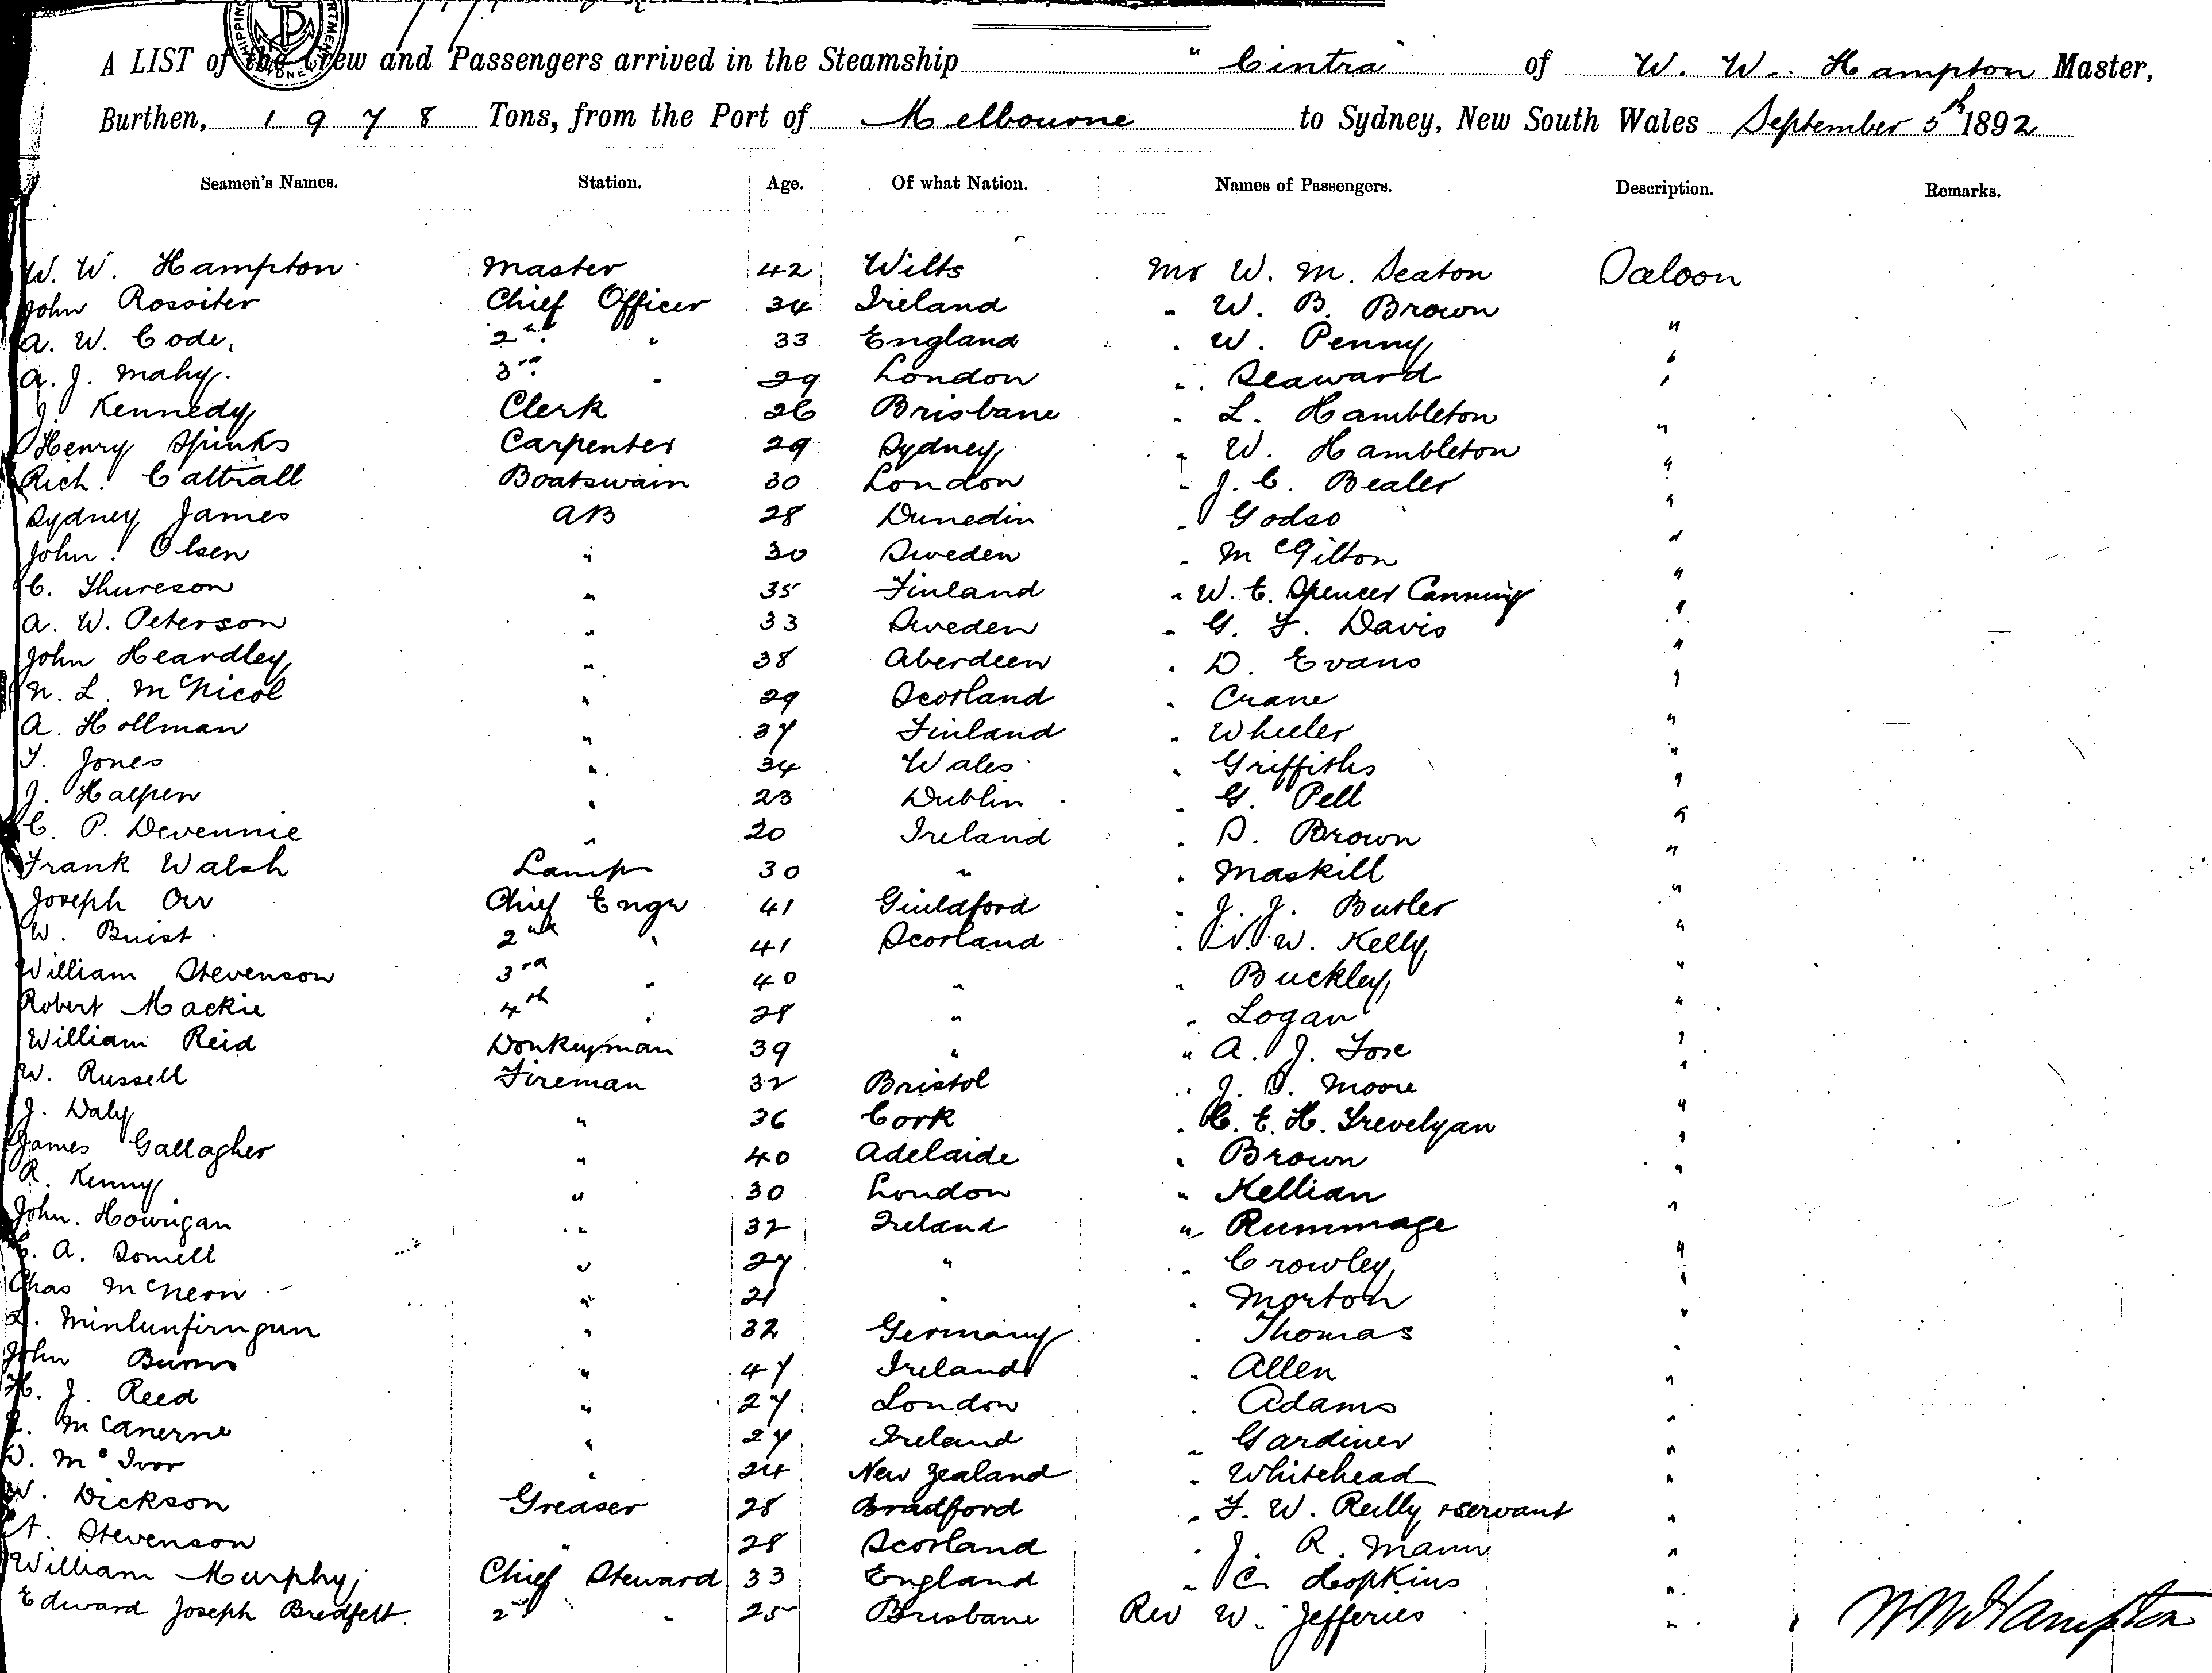 A LIST of the Crew and Passengers arrived in the Steamship "Cintra" of W. W. Hampton Master,
Burthen, 1978 Tons, from the Port of Melbourne to Sydney, New South Wales September 5th 1892
Seamen's Names. Station. Age. Of what Nation. Names of Passengers. Description. Remarks.
W. W. Hampton Master 42 Wilts Mr W. M. Seaton Saloon
John Rossiter Chief Officer 34 Ireland " W. B. Brown "
A. W. Code. 2nd " 33 England " W. Penny "
A. J. Mahy. 3rd " 29 London " Seaward "
J. Kennedy Clerk 26 Brisbane " L. Hambleton "
Henry Spinks Carpenter 29 Sydney " W. Hambleton "
Rich. Cattrall Boatswain 30 London " J. C. Bealer "
Sydney James AB 28 Dunedin " Godso "
John Olsen " 30 Sweden " McGilton "
C. Thureson " 35 Finland " W. E. Spencer Canning "
A. W. Peterson " 33 Sweden " G. F. Davis "
John Heardley " 38 Aberdeen " D. Evans "
N. L. McNicol " 29 Scotland " Crane "
A. Hollman " 37 Finland " Wheeler "
T. Jones " 34 Wales " Griffiths "
J. Halpen " 23 Dublin " G. Pell "
C. P. Devennie " 20 Ireland " S. Brown "
Frank Walsh Lamp 30 " " Maskill "
Joseph Orr Chief Engr 41 Guildford " J. J. Butler "
W. Buist 2nd " 41 Scotland " W. Kelly "
William Stevenson 3rd " 40 " " Buckley "
Robert Mackie 4th " 28 " " Logan "
William Reid Donkeyman 39 " " A. J. Tose "
W. Russell Fireman 32 Bristol " J. Moore "
J. Daly " 36 Cork " C. E. H. Trevelyan "
James Gallagher " 40 Adelaide " Brown "
R. Kenny " 30 London " Kellian "
John. Howrigan " 32 Ireland " Rummage "
C. A. Somell " 27 " " Crowley "
Chas McNeon " 21 " " Morton "
Minlunfirngun " 32 Germany " Thomas "
John Burns " 47 Ireland " Allen "
H. J. Reed " 27 London " Adams "
McAnerne " 27 Ireland " Gardiner "
McIvor " 24 New Zealand " Whitehead "
W. Dickson Greaser 28 Bradford " F. W. Reilly & servant "
Stevenson " 28 Scotland " J. R. Mann "
William Murphy Chief Steward 33 England " C. Hopkins "
Edward Joseph Bredfelt 2nd " 25 Brisbane Rev W. Jefferies "
W W Hampton